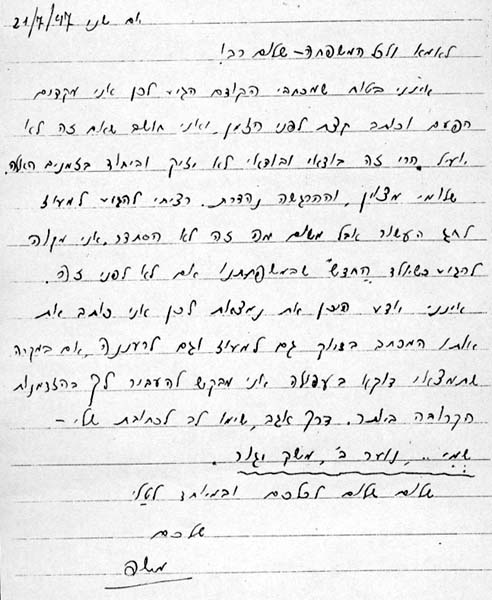 יום שני 21/7/47
לאמא ולכל המשפחה - שלום רב!
אינני בטוח שמכתבי הקודם הגיע לכן אני מקדים
הפעם וכותב קצת לפני הזמן. ואני חושב שאם זה לא
יועיל הרי זה בודאי ובודאי לא יזיק וביחוד בזמנים האלה.
שלומי מצוין, וההרגשה נהדרת. רציתי להגיע למעוז
לחג העשור אבל משום מה זה לא הסתדר. אני מקוה
להגיע כשיולד "החדש" שבמשפחתנו אם לא לפני זה.
אינני יודע היכן את נמצאת לכן אני כותב את
אותו המכתב בדיוק גם למעוז וגם לרעננה, אם במקרה
שתמצאי דוקא בעפולה אני מבקש להעביר לך בהזדמנות
הקרובה ביותר. דרך אגב, שימו לב לכתובת שלי -
שמי .., נוער ב', משק יגור.
שלום שלום לכולכם ובמיוחד לטלי
שלכם
משה